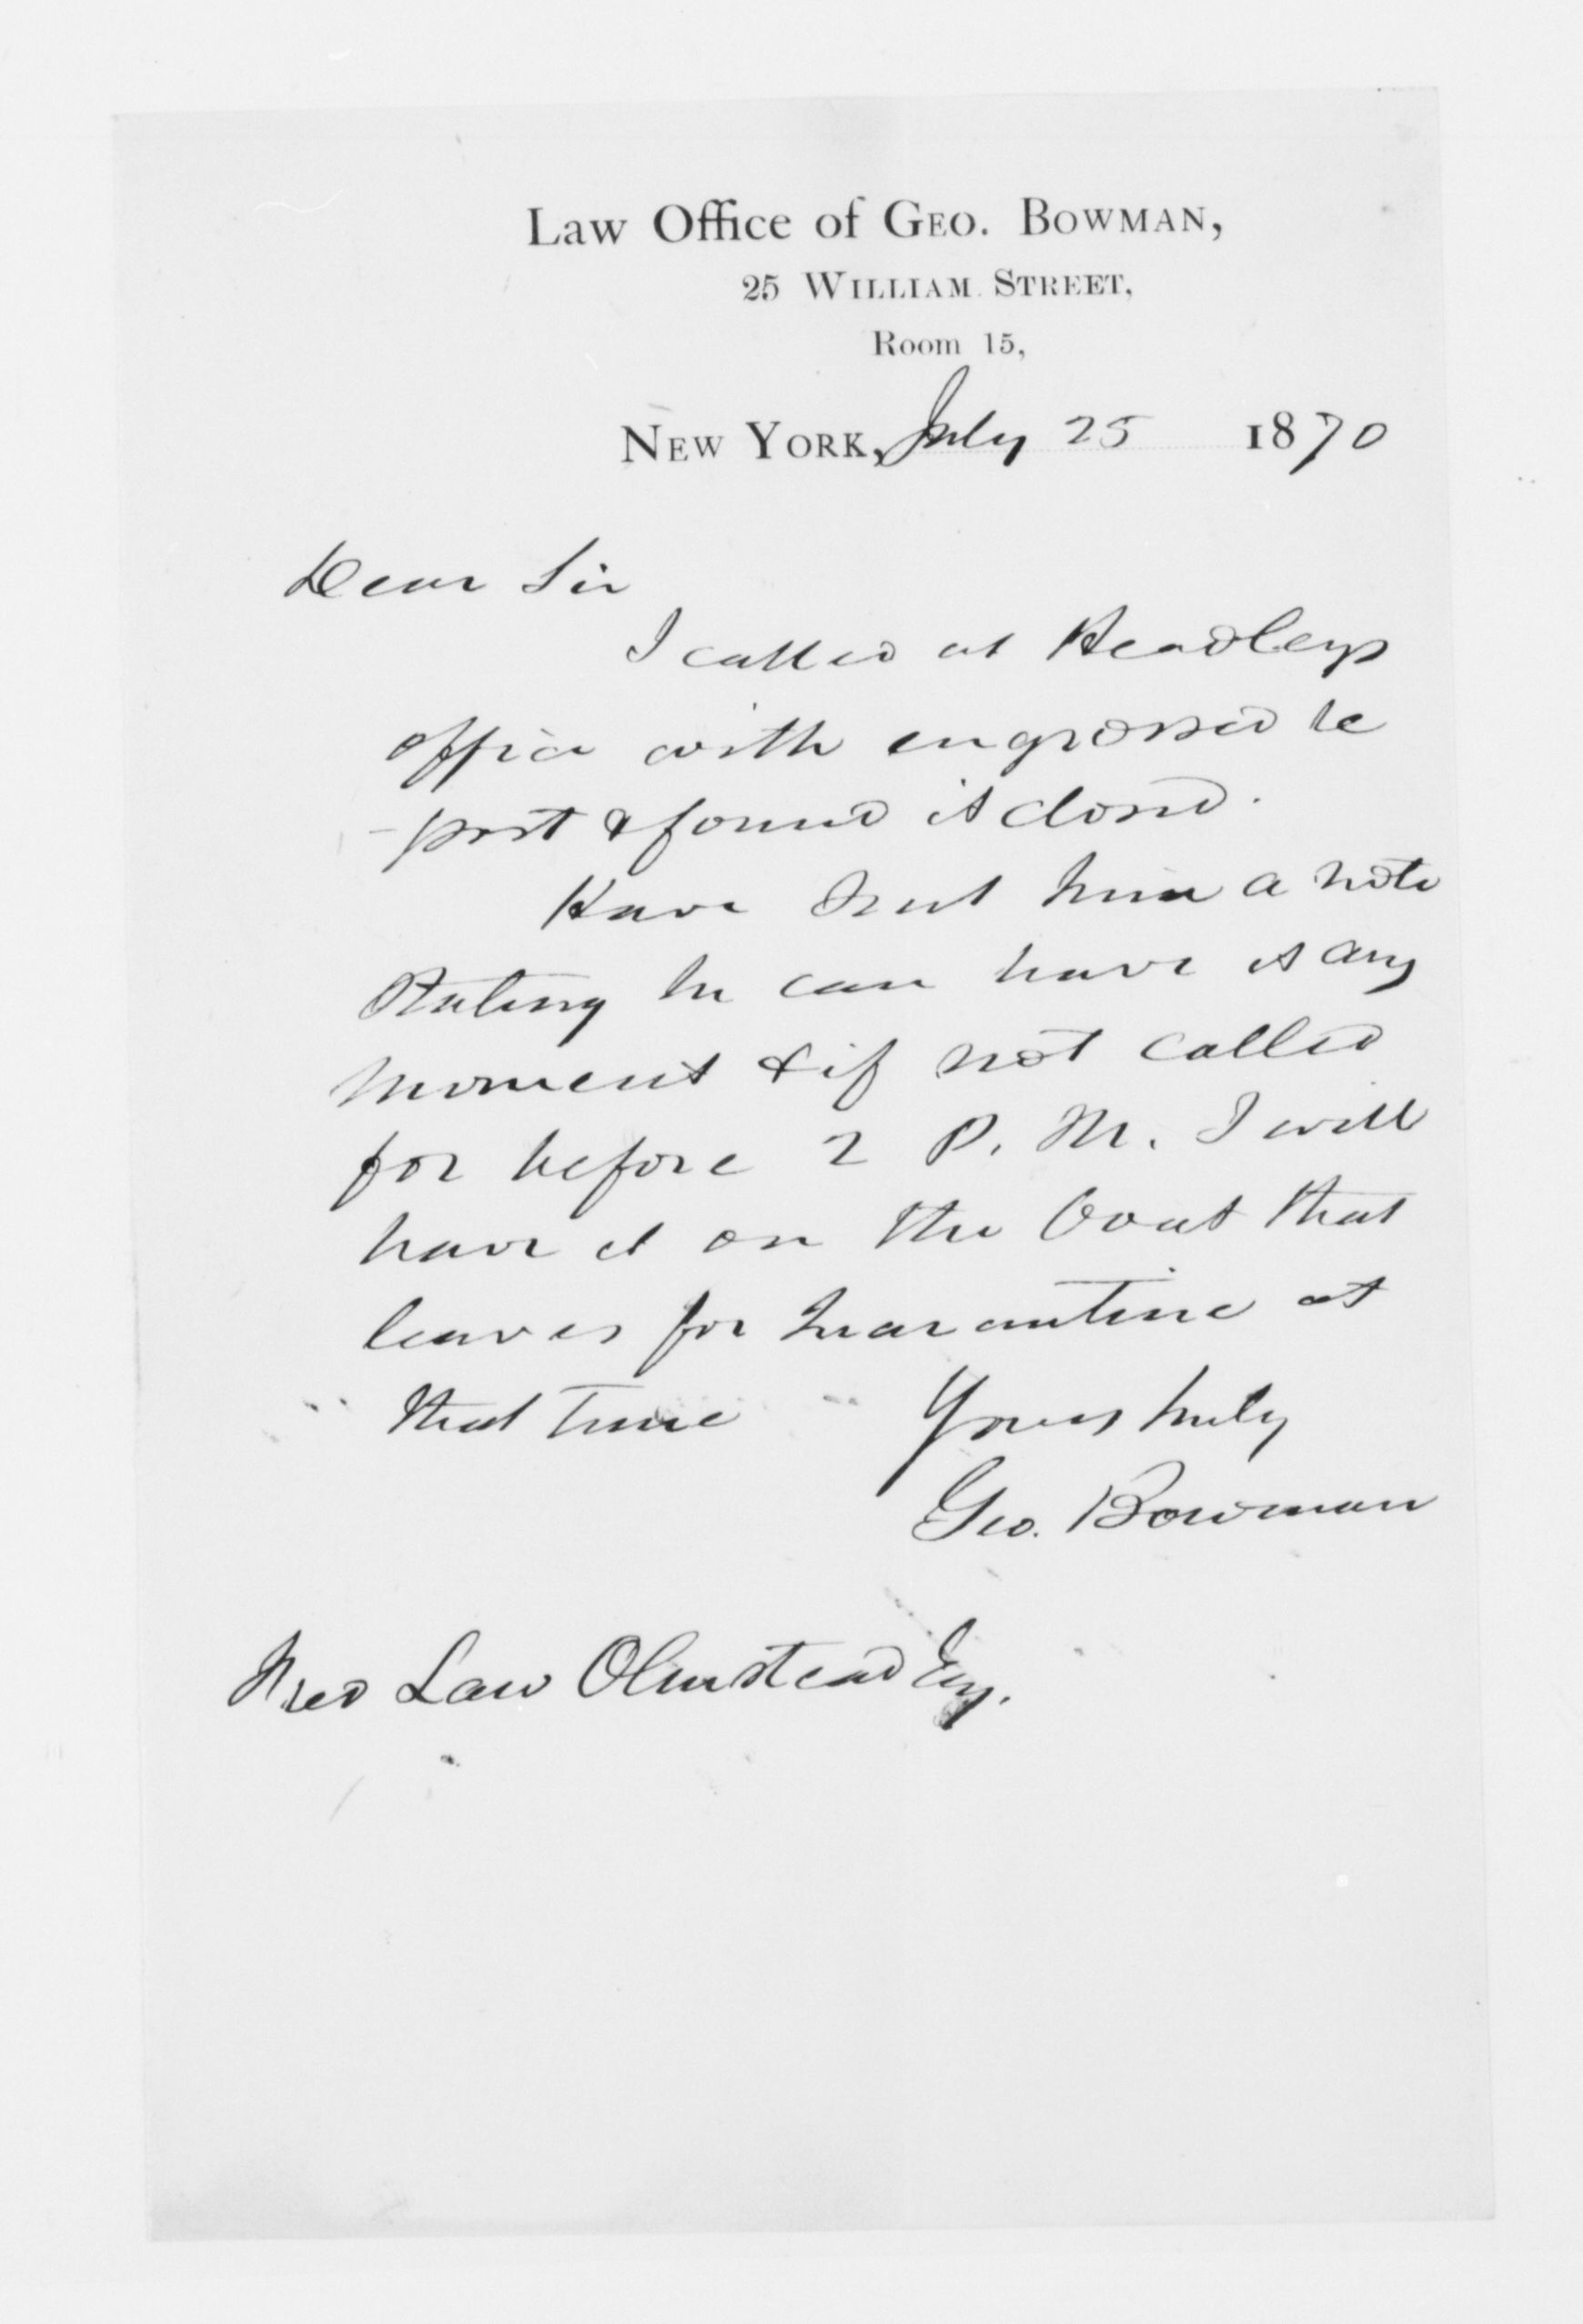 Law Office of Geo. Bowman,
25 William Street,
Room 15,
New York, July 25 1870
Dear Sir
I called at Headleys
office with engrossed re
-port & found it closed.
Have sent him a note
stating he can have it any
moment & if not called
for before 2 P. M. I will
have it on the boat that
leaves for Quarantine at
that time Yours truly
Geo. Bowman
Fred Law Olmstead Esq.